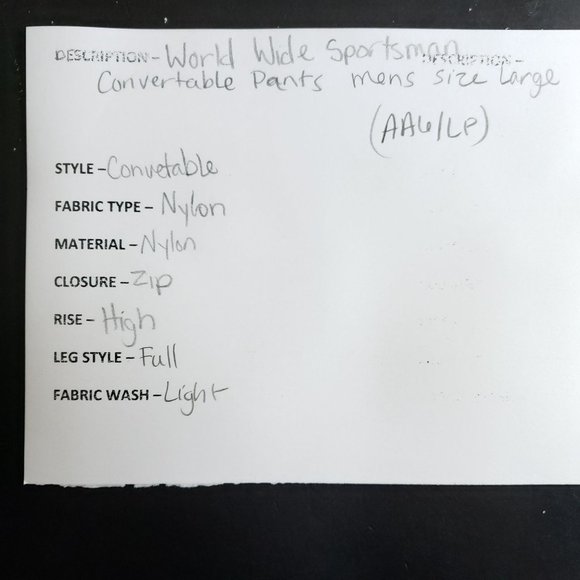 DESCRIPTION - World Wide Sportsman DESCRIPTION -
Convertable Pants mens size Large
(AA6/LP)
STYLE - Convetable
FABRIC TYPE - Nylon
MATERIAL - Nylon
CLOSURE - Zip
RISE - High
LEG STYLE - Full
FABRIC WASH - Light